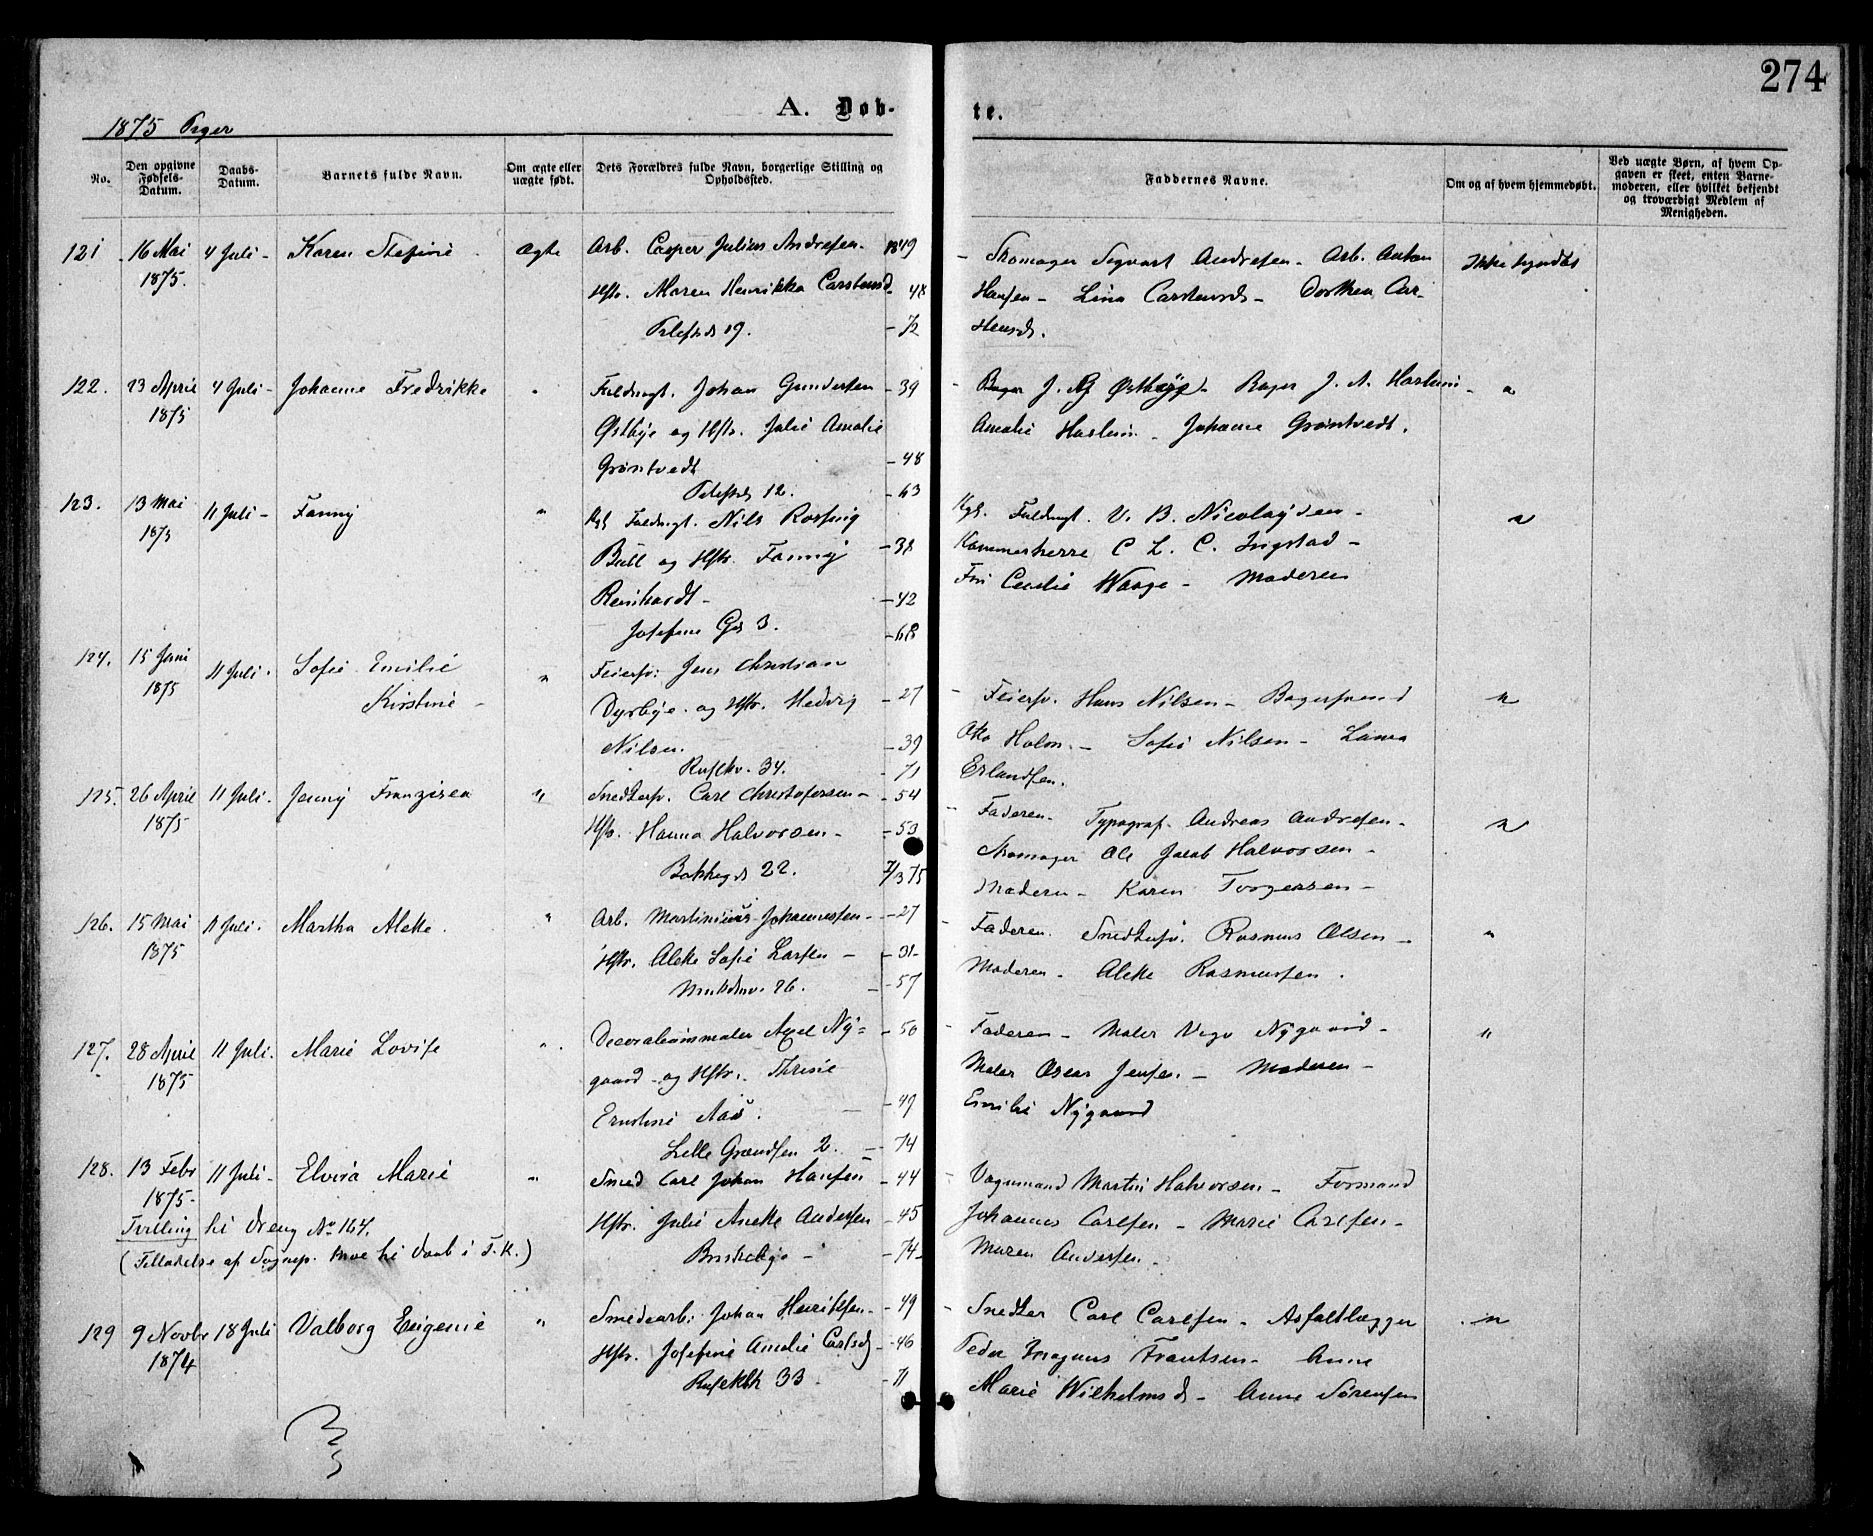 274
A. Døb-
te.
1875 Piger
No.
Den opgivne Fødsels-Datum.
Daabs-Datum.
Barnets fulde Navn.
Om ægte eller uægte født.
Dets Forældres fulde Navn, borgerlige Stilling og Opholdssted.
Faddernes Navne.
Om og af hvem hjemmedøbt.
Ved uægte Børn, af hvem Opgaven er skeet, enten Barnemoderen, eller hvilket bekjendt og troværdigt Medlem af Menigheden.
121 16 Mai 4 Juli - Karen Stefine ægte Arb. Casper Julius Andresen - 1849 - Skomager Sigvart Andresen - Arb. Anton Ikke
1875. Hstr. Maren Henrikka Carstensd - 48 Hansen - Lina Carstensd - Dorthea Car-
Pilestrd 19. - 72 stensd.
122. 23 April 4 Juli - Johanne Fredrikke " Fuldmgt. Johan Gundersen - 39 - Bager J. Østbye - Bager J. A. Haslum - "
1875 Østbye og Hstr. Julie Amalie Amalie Haslum - Johanne Grøntvedt.
Grøntvedt - 48
Pilestrd 12. - 63
123. 13 Mai 11 Juli - Fanny " Kgl Fuldmgt. Nils Rosing Kgl. Fuldmgt. V. B. Nicolaysen - "
1875 Bull og Hstr. Fanny - 38 Kammerherre C. L. C. Ingstad -
Reinhardt - - 42 Fru Cecilie Waage - Moderen
Josefine Gd 3. - 68
124. 15 Juni 11 Juli. Sofie Emilie " Feiersv: Jens Christian
1875 Kirstine - Dyrbye - og Hstr. Hedvig - 27 - Feiersv. Hans Nilsen - Bagersvend "
Nilsen. - 39 Otto Holm. - Sofie Nilsen - Laura
Rusekv. 34. - 71 Erlandsen.
125. 26 April 11 Juli. Jenny Franzisca " Snedkersv. Carl Christofersen - - 54 - Faderen - Typograf. Andreas Andresen - "
1875 Hstr. Hanna Halvorsen - - 53 Skomager Ole Jakob Halvorsen -
Bakkegd 22. 7/3 75 Moderen - Karen Torgersen -
126. 15 Mai 11 Juli. Martha Aleke. " Arb. Martinius Johannessen - - 27 - Faderen. Snedkersv. Rasmus Olsen - "
1875 Hstr. Aleke Sofie Larsen - - 31 - Moderen. Aleke Rasmussen.
26. - 57
127. 28 April 11 Juli. Marie Lovise " Decorationsmaler Axel Ny= - 50 - Faderen - Maler Vigo Nygaard - "
1875 gaard - og Hstr. Thresie Maler Oscar Jensen. - Moderen -
Ernstine Aas. - 49 Emilie Nygaard
Lille Grændsen 2. - 74
128. 13 Febr 11 Juli - Elvira Marie " Smed Carl Johan Hansen - 44 - Vognmand Martin Halvorsen - Formand
1875 - Hstr. Julie Anette Andersen - 45 Johannes Carlsen - Marie Carlsen -
Tvilling til Dreng No 164. Briskebye - - 74 - Maren Andersen.
(Tilladelse af Sognep. til Daab i T. K.)
129 9 Novbr 18 Juli Valborg Eugenie " Smedearb: Johan Henriksen - - 49 - Snedker Carl Carlsen - Asfaltlægger "
1874 Hstr. Josefine Amalie Carlsd - - 46 Peder Magnus Frantsen - Anne
33 - - 71 Marie Wilhelmsd - Anne Sørensen